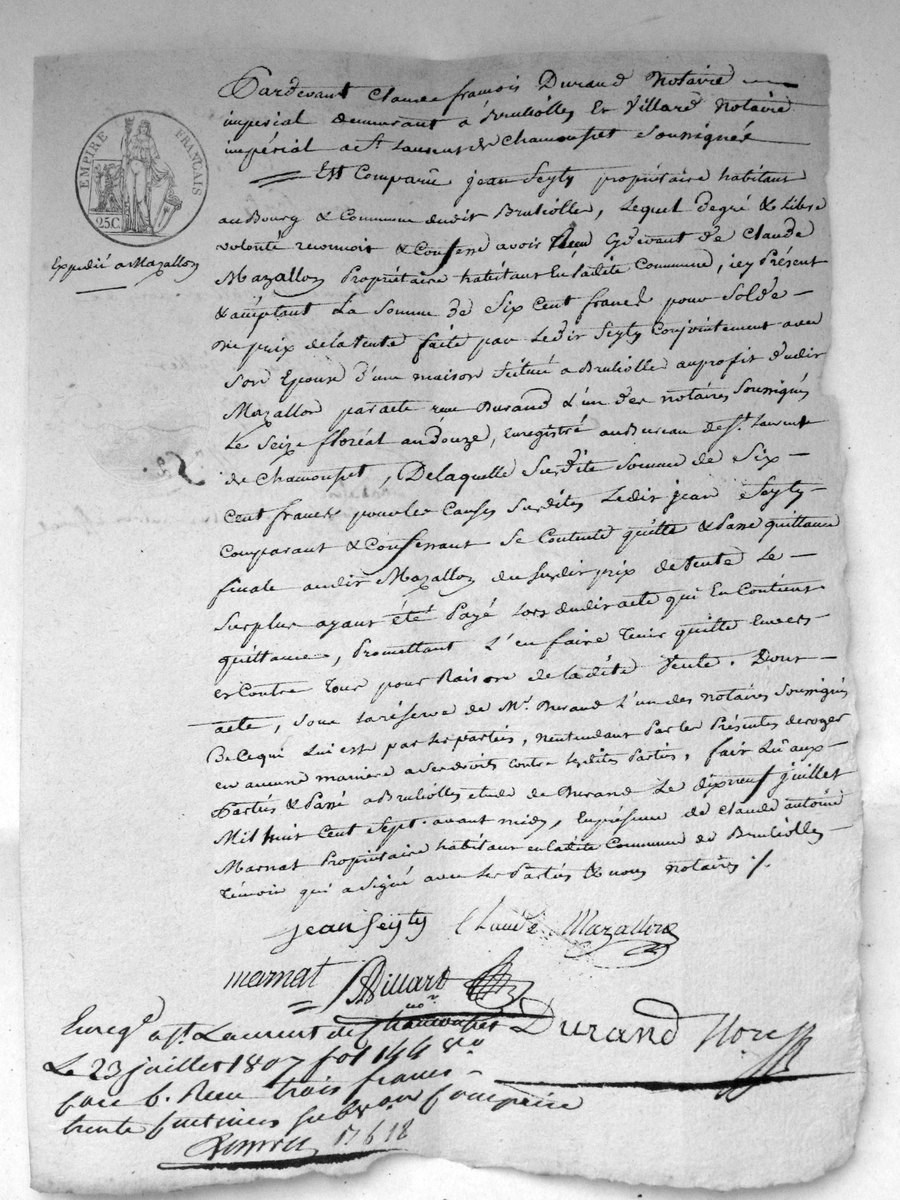 EMPIRE FRANÇAIS
25C
Expedié a Mazallon
Pardevant Claude françois Durand Notaire
imperial demeurant a Brullolles Et Villard Notaire
impérial a St. Laurent de Chamousset Soussignés
Est Comparu jean Seyty propriétaire habitant
au Bourg & Commune dudit Brullolles, Lequel de gré & libre
volonté reconnoit & Confesse avoir Reçu Cydevant de Claude
Mazallon Propriétaire habitant En ladite Commune, icy Présent
& acceptant La Somme de Six Cent francs pour Solde
du prix de la vente faite par Ledit Seyty Conjointement avec
Son Epouse d'une maison Située a Brullolle au profit dudit
Mazallon par acte reçu Durand L'un des notaires Soussignés
Le Seize floréal an douze, Enregistré au Bureau de St. Laurent
de Chamousset, De laquelle Susdite Somme de Six
Cent francs pour les Causes Susdites Ledit jean Seyty
Comparant & Confessant Se Contente quitte & Passe quittance
finale audit Mazallon du Susdit prix de vente Le
Surplus ayant été Payé Lors dudit acte qui En Contient
quittance, Promettant L'en faire Tenir quitte Envers
et Contre Tous pour Raison de ladite Vente. Dont
acte, sous la réserve de Mr. Durand L'un des notaires Soussignés
De Ce qui Lui est par les parties, n'entendant Par les Présentes deroger
en aucune maniere a Ses droits contre lesdites Parties, fait Lû aux
Parties & Passé a Brullolles etude de Durand Le dix neuf juillet
Mil huit Cent Sept. avant midy, En présence de Claude antoine
Marnat Propriétaire habitant en ladite Commune de Brullolles
Témoin qui a Signé avec les Parties & nous notaires
jean Seyty Claude Mazallon
marnat Villard
Durand Nore
Enregé. a St. Laurent de Chamousset
Le 23 juillet 1807 fol 144 vo.
case 6. Reçu trois francs
trente centimes subvon comprise